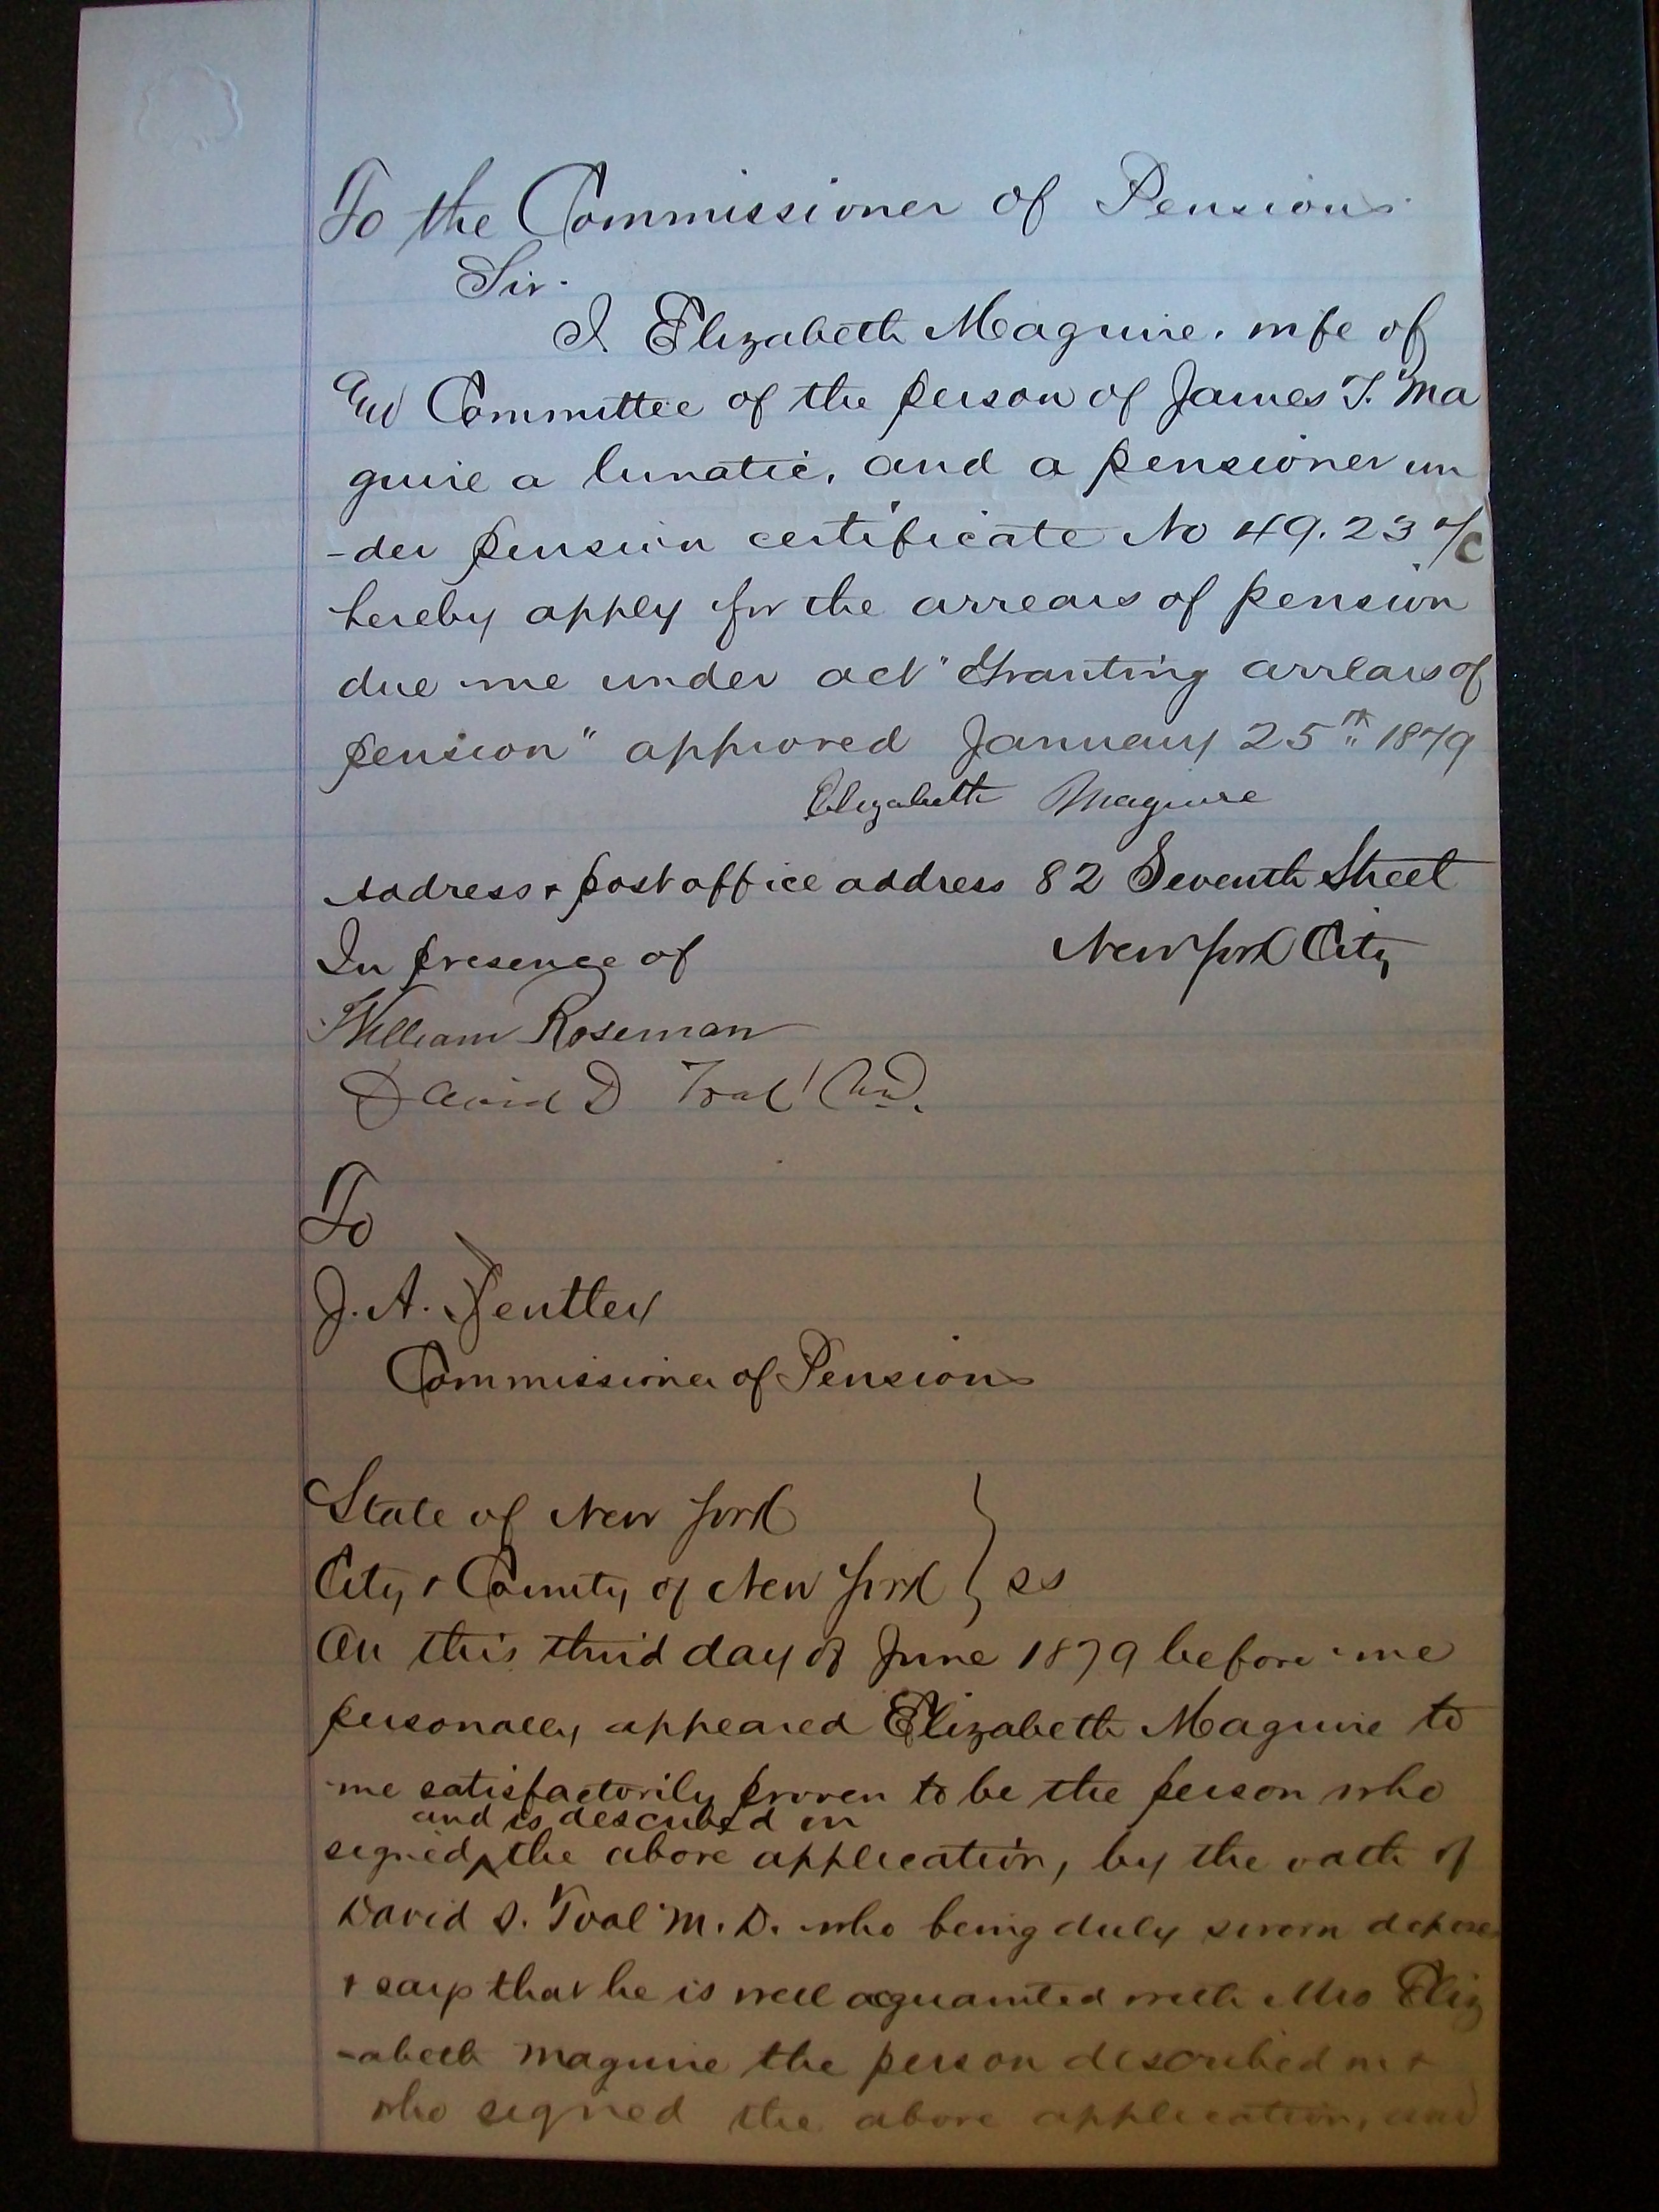 To the Commissioner of Pensions.
Sir.
I Elizabeth Maguire, wife of
and Committee of the person of James T. Ma
guire a lunatic, and a pensioner un
-der pension certificate No 49.23
hereby apply for the arrears of pension
due me under act "Granting arrears of
pension" approved January 25th 1879
Elizabeth Maguire
Address & post office address 82 Seventh Street
In presence of New York City
William Roseman
David D Toal MD.
To
J. A. Bentley
Commissioner of Pensions
State of New York
City & County of New York } ss
On this third day of June 1879 before me
personally appeared Elizabeth Maguire to
me satisfactorily proven to be the person who
and is described in
signed ^ the above application, by the oath of
David D. Toal M.D. who being duly sworn deposes
& says that he is well acquainted with Mrs Eliz
-abeth Maguire the person described in &
who signed the above application, and